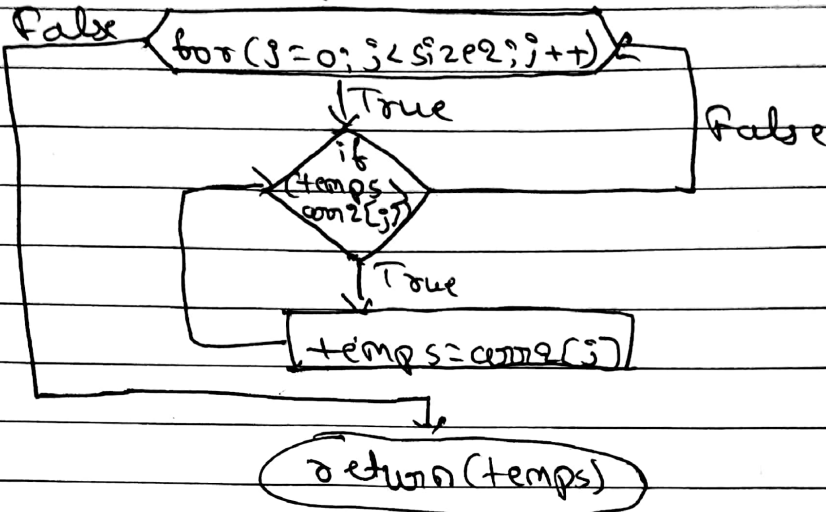 False
for(j=0; j<size2; j++)
True
False
if
(temps>
arr2[j])
True
temps=arr2[j]
return(temps)